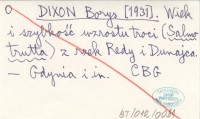 O DIXON Borys [1931]. Wiek
i szybkość wzrostu troci (Salmo
trutta) z rzek Redy i Dunajca.
— Gdynia i in. CBG
BT/012/0031